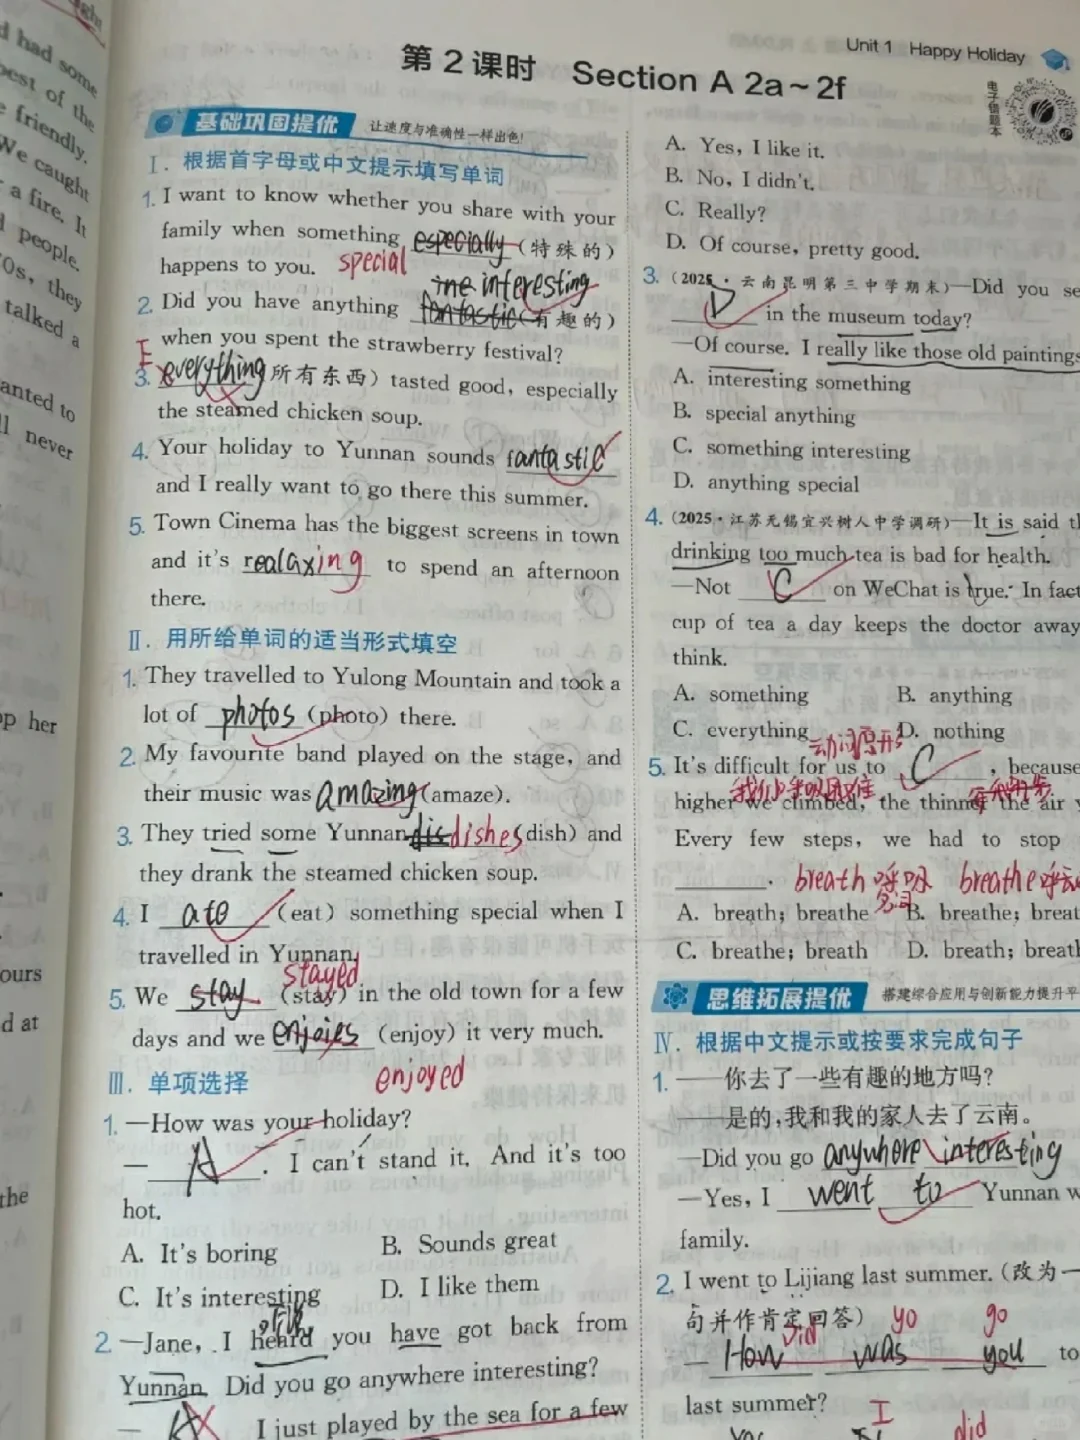 d had some
best of the
e friendly.
We caught
a fire. It
people.
0s, they
talked a
anted to
ll never
op her
ours
d at
the
Unit 1 Happy Holiday
第2课时 Section A 2a~2f
电子错题本
基础巩固提优 让速度与准确性一样出色!
Ⅰ. 根据首字母或中文提示填写单词
1. I want to know whether you share with your
family when something especially (特殊的)
happens to you. special
ine interesting
2. Did you have anything fantastic (有趣的)
when you spent the strawberry festival?
E
3. everything 所有东西) tasted good, especially
the steamed chicken soup.
4. Your holiday to Yunnan sounds fantastic
and I really want to go there this summer.
5. Town Cinema has the biggest screens in town
and it's realaxing to spend an afternoon
there.
Ⅱ. 用所给单词的适当形式填空
1. They travelled to Yulong Mountain and took a
lot of photos (photo) there.
2. My favourite band played on the stage, and
their music was amazing (amaze).
3. They tried some Yunnan dis dishes dish) and
they drank the steamed chicken soup.
4. I ate (eat) something special when I
travelled in Yunnan.
stayed
5. We stay (stay) in the old town for a few
days and we enjoies (enjoy) it very much.
enjoyed
Ⅲ. 单项选择
1. —How was your holiday?
— A . I can't stand it. And it's too
hot.
A. It's boring B. Sounds great
C. It's interesting D. I like them
听说
2. —Jane, I heard you have got back from
Yunnan. Did you go anywhere interesting?
— A I just played by the sea for a few
A. Yes, I like it.
B. No, I didn't.
C. Really?
D. Of course, pretty good.
3. (2025·云南昆明第三中学期末)—Did you se
D in the museum today?
—Of course. I really like those old paintings
A. interesting something
B. special anything
C. something interesting
D. anything special
4. (2025·江苏无锡宜兴树人中学调研)—It is said th
drinking too much tea is bad for health.
—Not C on WeChat is true. In fact
cup of tea a day keeps the doctor away
think.
A. something B. anything
C. everything D. nothing
动词原形
5. It's difficult for us to C , because
我们呼吸困难
higher we climbed, the thinner the air
Every few steps, we had to stop
. breath 呼吸 breathe
名词
A. breath; breathe B. breathe; breat
C. breathe; breath D. breath; breath
思维拓展提优 搭建综合应用与创新能力提升平
Ⅳ. 根据中文提示或按要求完成句子
1. ——你去了一些有趣的地方吗?
——是的,我和我的家人去了云南。
—Did you go anywhere interesting
—Yes, I went to Yunnan w
family.
2. I went to Lijiang last summer. (改为一
句并作肯定回答) yo go
Did
— How was you to
last summer?
I did